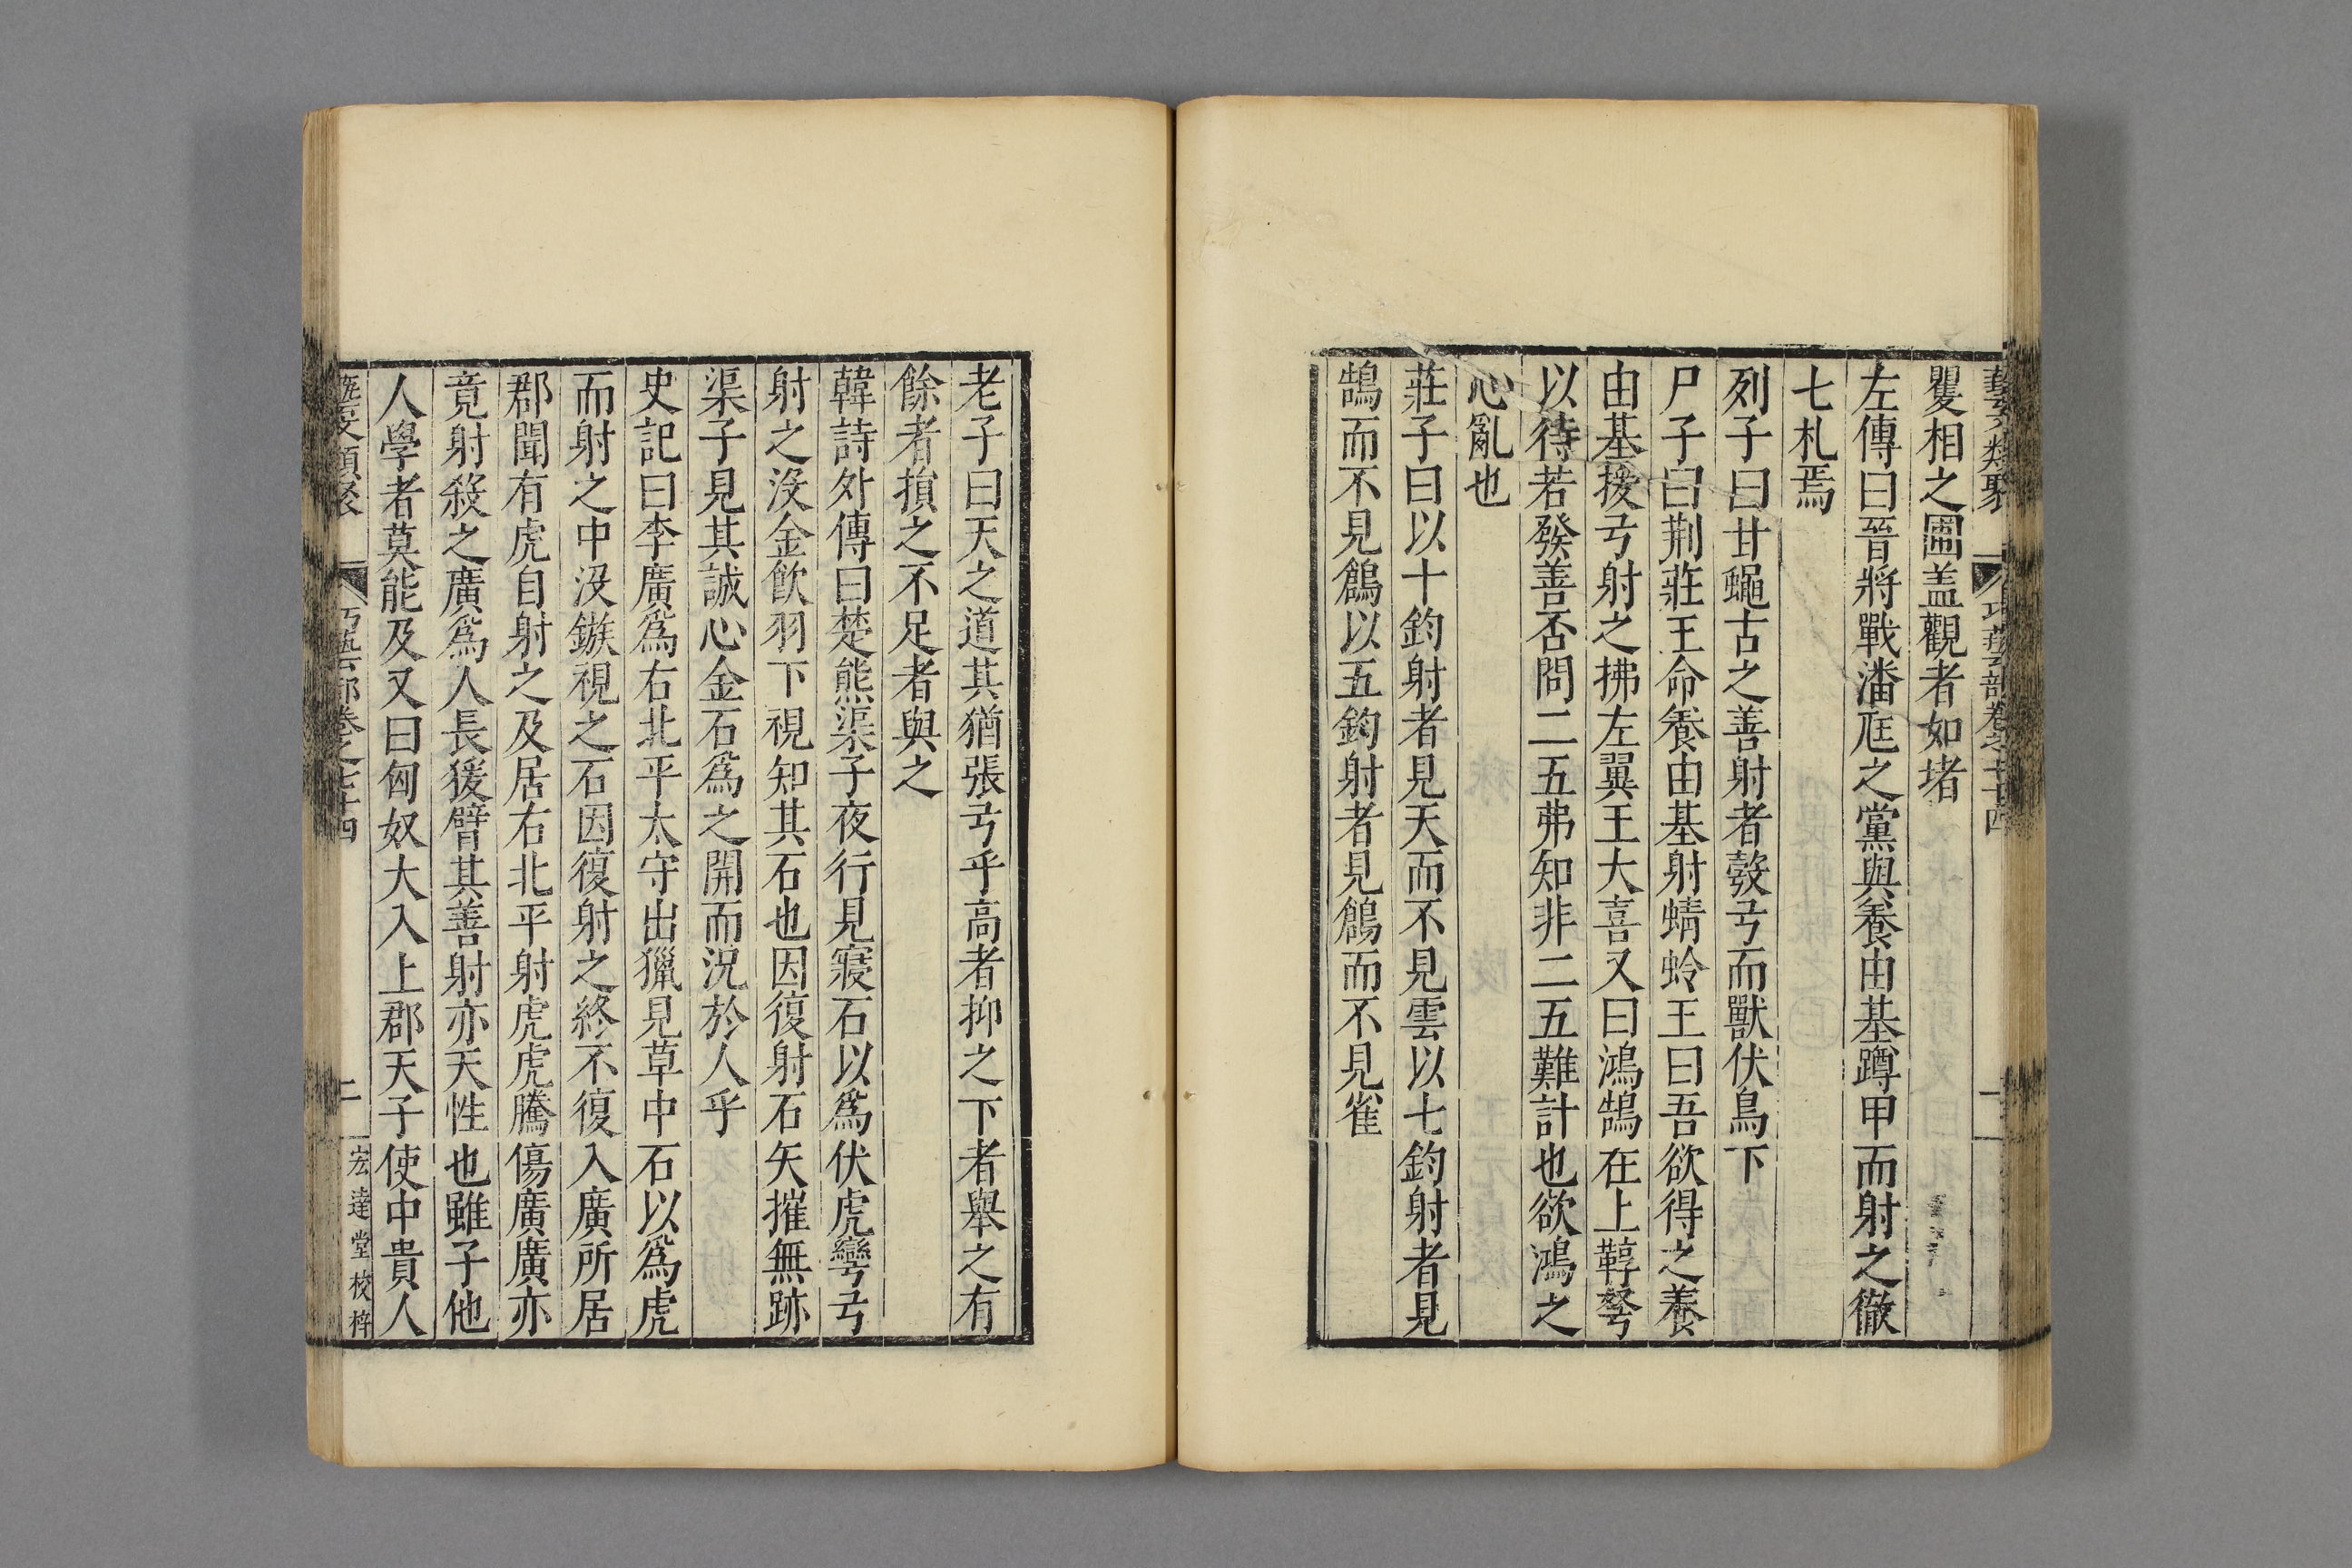 藝文類聚 巧藝部卷之七十四 一
矍相之圃盖觀者如堵
左傳曰晉將戰潘尫之黨與養由基蹲甲而射之徹
七札焉
列子曰甘蠅古之善射者彀弓而獸伏鳥下
尸子曰荆莊王命養由基射蜻蛉王曰吾欲得之養
由基援弓射之拂左翼王大喜又曰鴻鵠在上鞟弩
以待若發善否問二五弗知非二五難計也欲鴻之
心亂也
莊子曰以十鈞射者見天而不見雲以七鈞射者見
鵠而不見鶬以五鈞射者見鶬而不見雀
老子曰天之道其猶張弓乎高者抑之下者舉之有
餘者損之不足者與之
韓詩外傳曰楚熊渠子夜行見寢石以爲伏虎彎弓
射之没金飲羽下視知其石也因復射石矢摧無跡
渠子見其誠心金石爲之開而況於人乎
史記曰李廣爲右北平太守出獵見草中石以爲虎
而射之中没鏃視之石因復射之終不復入廣所居
郡聞有虎自射之及居右北平射虎虎騰傷廣廣亦
竟射殺之廣爲人長猨臂其善射亦天性也雖子他
人學者莫能及又曰匈奴大入上郡天子使中貴人
藝文類聚 巧藝部卷之七十四 二 宏達堂校梓